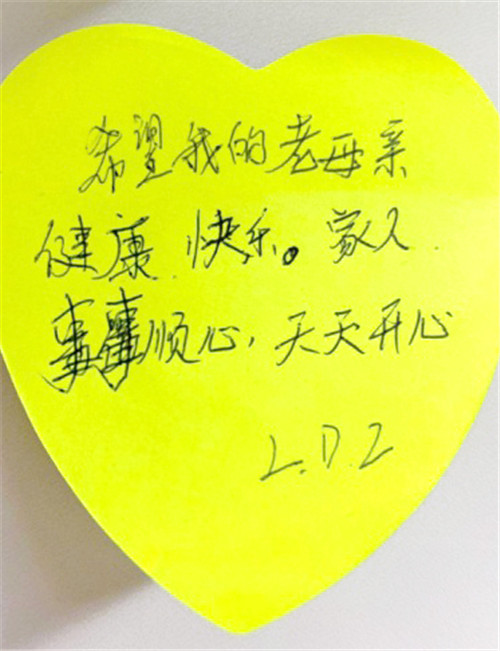 希望我的老母亲
健康 快乐。家人
事事顺心，天天开心
L.D.Z